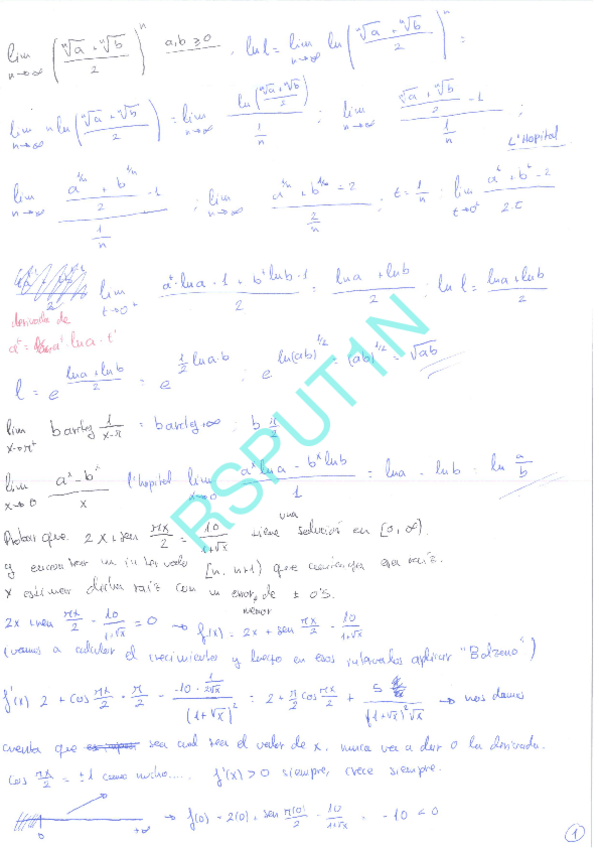 lim n→∞ ((ⁿ√a + ⁿ√b)/2)ⁿ a,b ≥ 0 , ln l = lim n→∞ ln ((ⁿ√a + ⁿ√b)/2)ⁿ =
lim n→∞ n ln ((ⁿ√a + ⁿ√b)/2) = lim n→∞ ln((ⁿ√a + ⁿ√b)/2) / (1/n) ; lim n→∞ ((ⁿ√a + ⁿ√b)/2 - 1) / (1/n) ;
L'Hopital
lim n→∞ ((a^(1/n) + b^(1/n))/2 - 1) / (1/n) ; lim n→∞ (a^(1/n) + b^(1/n) - 2) / (2/n) ; t = 1/n ; lim t→0⁺ (a^t + b^t - 2) / (2·t)
lim t→0⁺ (a^t · ln a · 1 + b^t ln b · 1) / 2 = (ln a + ln b) / 2 ; ln l = (ln a + ln b) / 2
derivada de
a^t = a^t · ln a · t'
l = e^((ln a + ln b)/2) = e^(1/2 ln a·b) ; e^(ln(ab)^(1/2)) = (ab)^(1/2) = √ab
lim x→π⁺ b arctg 1/(x-π) = b arctg +∞ ; b π/2
lim x→0 (a^x - b^x) / x l'hopital lim x→0 (a^x ln a - b^x ln b) / 1 = ln a - ln b = ln a/b
Probar que 2x + sen πx/2 = 10/(1+√x) tiene una solución en [0, ∞).
y encontrar un intervalo [n, n+1) que contenga esa raíz.
x estimar dicha raíz con un error menor de ± 0'5.
2x + sen πx/2 - 10/(1+√x) = 0 → f(x) = 2x + sen πx/2 - 10/(1+√x)
(vamos a calcular el crecimiento y luego en esos intervalos aplicar "Bolzano")
f'(x) 2 + cos πx/2 · π/2 - (-10 · 1/(2√x)) / (1+√x)² = 2 + π/2 cos πx/2 + 5 / ((1+√x)² √x) → nos damos
cuenta que sea cual sea el valor de x. nunca va a dar 0 la derivada.
cos πx/2 = ±1 como mucho.... f'(x) > 0 siempre, crece siempre.
0 +∞ → f(0) = 2(0) + sen π(0)/2 - 10/(1+√x) = -10 < 0
1
RSPUT1N